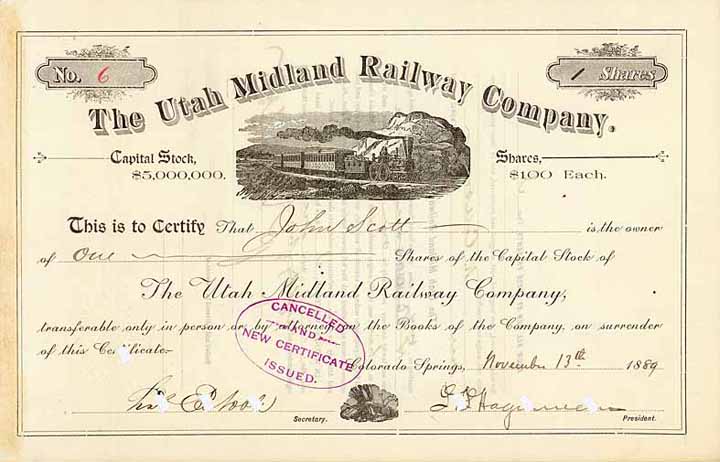 No. 6
1 Shares
The Utah Midland Railway Company.
Capital Stock,
$5,000,000.
Shares,
$100 Each.
This is to Certify That John Scott is the owner
of one Shares of the Capital Stock of
The Utah Midland Railway Company,
transferable only in person or by attorney on the Books of the Company, on surrender
of this Certificate.
CANCELLED
AND
NEW CERTIFICATE
ISSUED.
Colorado Springs, November 13th 1889
Secretary.
President.